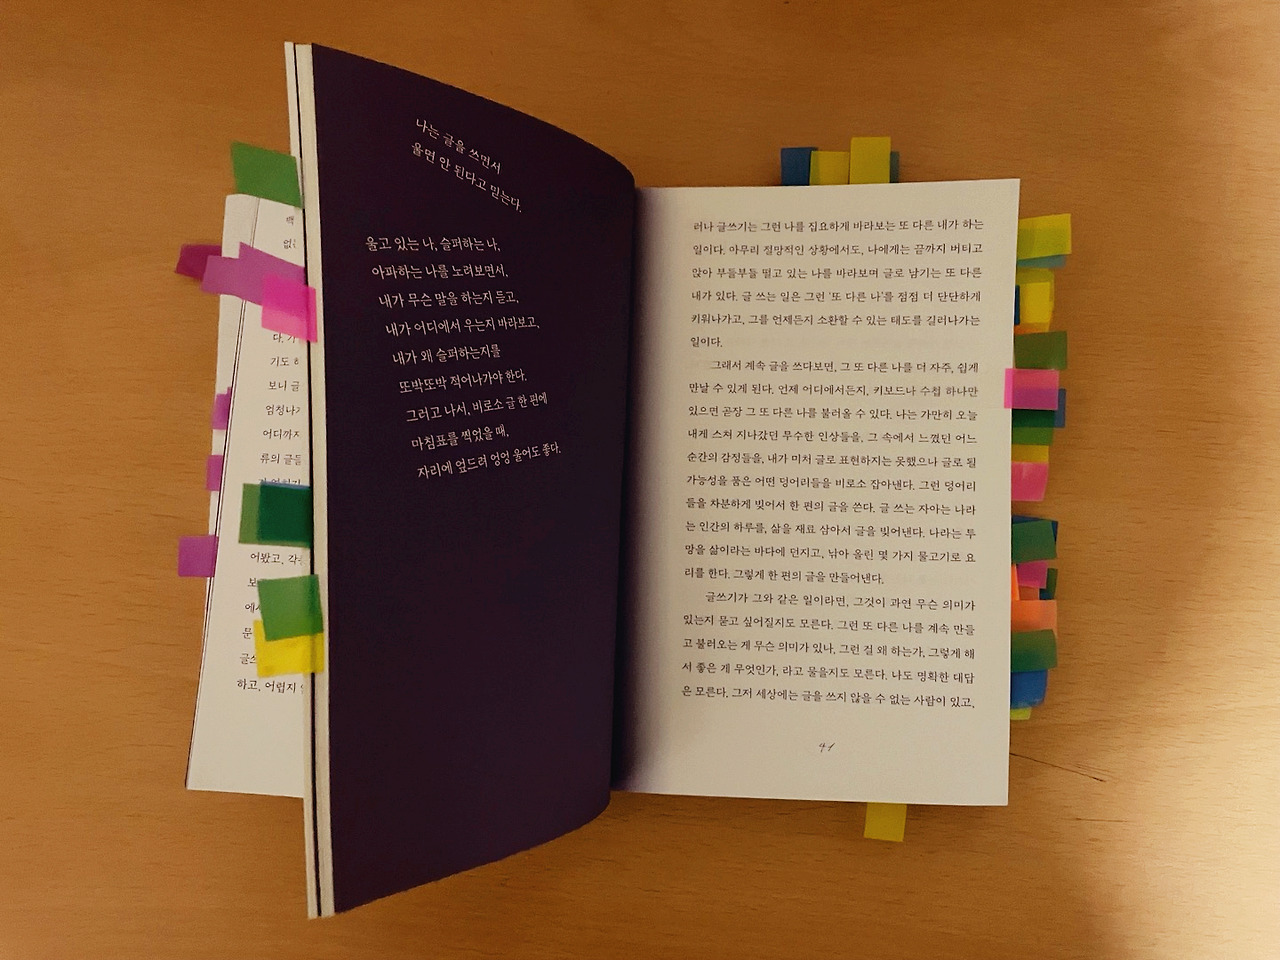 백
없
다.
기도
보니 글
엄청나
어디까지
류의 글들
어봤고, 각
보
에서
문
글쓰
하고, 어렵지
나는 글을 쓰면서
울면 안 된다고 믿는다.
울고 있는 나, 슬퍼하는 나,
아파하는 나를 노려보면서,
내가 무슨 말을 하는지 듣고,
내가 어디에서 우는지 바라보고,
내가 왜 슬퍼하는지를
또박또박 적어나가야 한다.
그러고 나서, 비로소 글 한 편에
마침표를 찍었을 때,
자리에 엎드려 엉엉 울어도 좋다.
러나 글쓰기는 그런 나를 집요하게 바라보는 또 다른 내가 하는
일이다. 아무리 절망적인 상황에서도, 나에게는 끝까지 버티고
앉아 부들부들 떨고 있는 나를 바라보며 글로 남기는 또 다른
내가 있다. 글 쓰는 일은 그런 '또 다른 나'를 점점 더 단단하게
키워나가고, 그를 언제든지 소환할 수 있는 태도를 길러나가는
일이다.
그래서 계속 글을 쓰다보면, 그 또 다른 나를 더 자주, 쉽게
만날 수 있게 된다. 언제 어디에서든지, 키보드나 수첩 하나만
있으면 곧장 그 또 다른 나를 불러올 수 있다. 나는 가만히 오늘
내게 스쳐 지나갔던 무수한 인상들을, 그 속에서 느꼈던 어느
순간의 감정들을, 내가 미처 글로 표현하지는 못했으나 글로 될
가능성을 품은 어떤 덩어리들을 비로소 잡아낸다. 그런 덩어리
들을 차분하게 빚어서 한 편의 글을 쓴다. 글 쓰는 자아는 나라
는 인간의 하루를, 삶을 재료 삼아서 글을 빚어낸다. 나라는 투
망을 삶이라는 바다에 던지고, 낚아 올린 몇 가지 물고기로 요
리를 한다. 그렇게 한 편의 글을 만들어낸다.
글쓰기가 그와 같은 일이라면, 그것이 과연 무슨 의미가
있는지 묻고 싶어질지도 모른다. 그런 또 다른 나를 계속 만들
고 불러오는 게 무슨 의미가 있나, 그런 걸 왜 하는가, 그렇게 해
서 좋은 게 무엇인가, 라고 물을지도 모른다. 나도 명확한 대답
은 모른다. 그저 세상에는 글을 쓰지 않을 수 없는 사람이 있고,
41